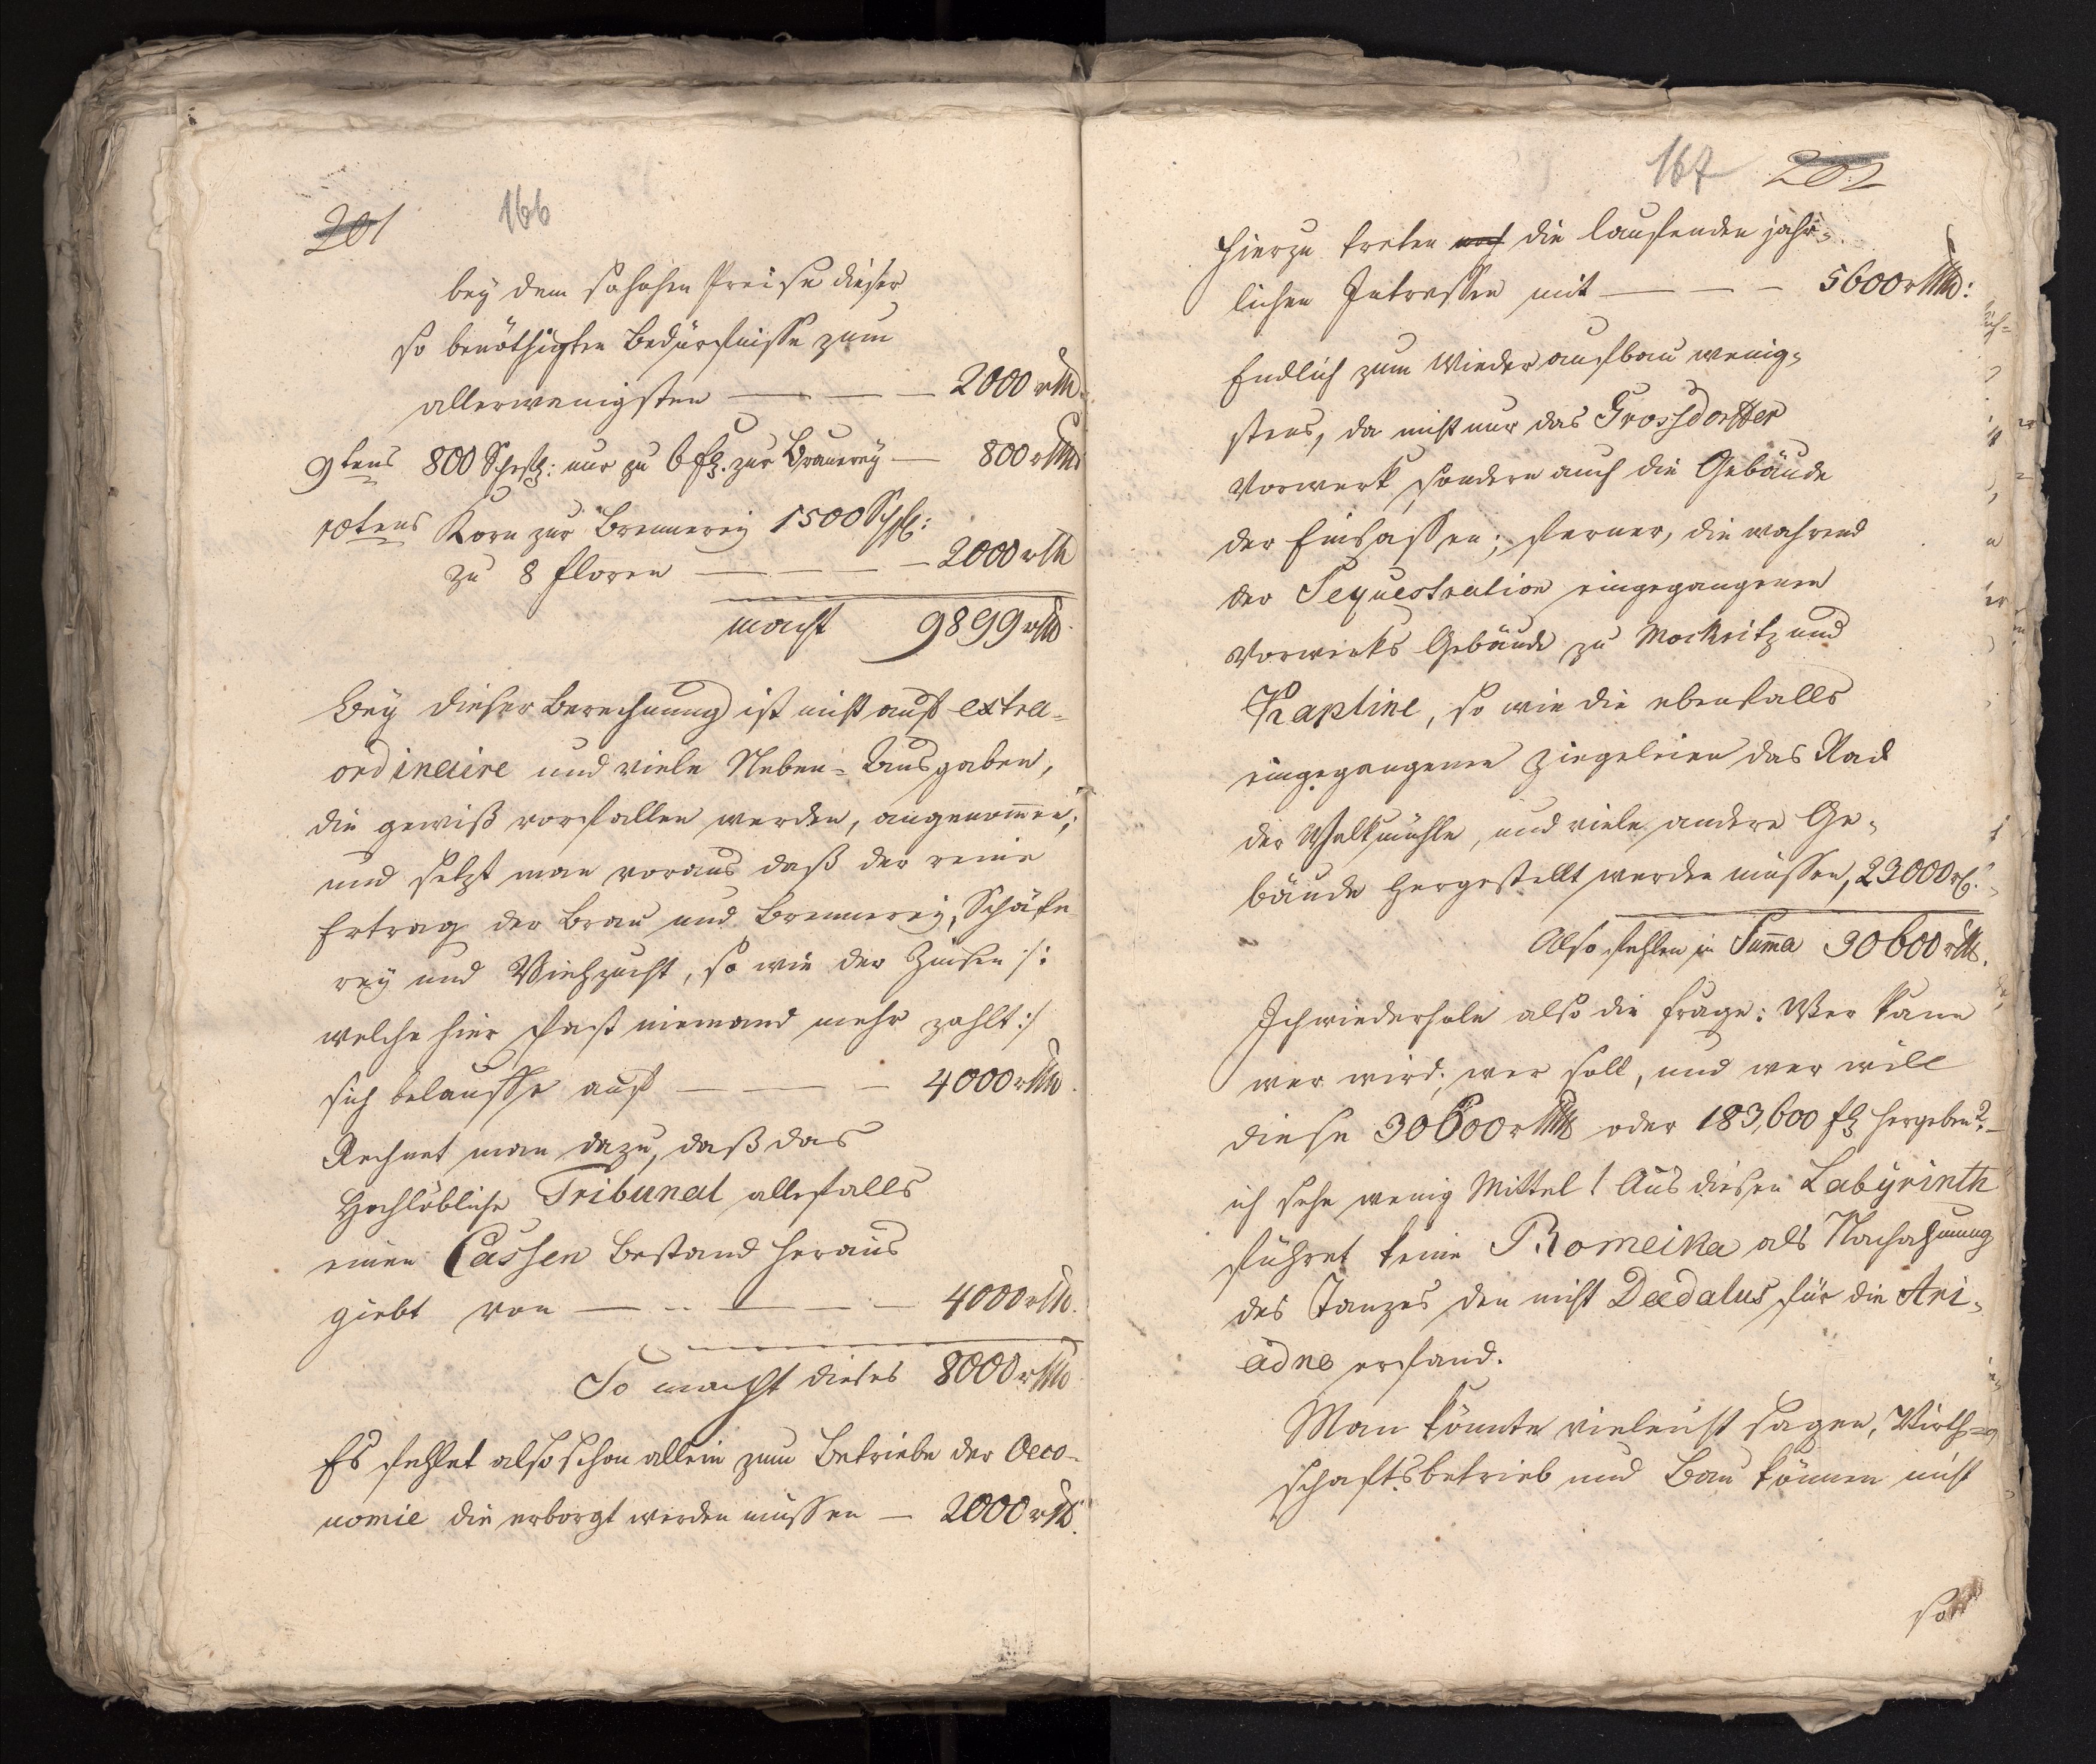 201 166
bey dem so hohen Preise dieser
so benöthigten Bedürfnisse zum
allerwenigsten — — — 2000 rth.
9tens 800 Schfl: nur zu 6 fl. zur Brauerey — 800 rth
10tens Korn zur Brennerey 1500 Schfl:
zu 8 Floren — — — — 2000 rth
macht 9899 rth.
Bey dieser Berechnung ist nicht auf extra-
ordinaire und viele Neben-Ausgaben,
die gewiß vorfallen werden, angenom̄en;
und setzt man voraus daß der reine
Ertrag der Brau und Brennerey, Schäfe
rey und Viehzucht, so wie der Zinsen /:
welche hier fast niemand mehr zahlt :/
sich belauffe auf — — — 4000 rth.
Rechnet man dazu, daß das
Hochlöbliche Tribunal allenfalls
einen Cassen Bestand heraus
giebt von — — — — 4000 rth.
So macht dieses 8000 rth
Es fehlet also schon allein zum Betriebe der Oeco-
nomie die erborgt werden müssen — 2000 rth.
167 202
Hierzu treten noch die laufenden jähr-
lichen Intressen mit — — — 5600 rth:
Endlich zum Wiederaufbau wenig-
stens, da nicht nur das Grossdorffer
Vorwerk, sondern auch die Gebäude
der Einsassen; ferner, die wahrend
der Sequestration eingegangenen
Vorwerks Gebäude zu Mockritz und
Kapline, so wie die ebenfalls
eingegangenen Ziegeleien das Rad
der Walkmühle, und viele andere Ge-
bäude hergestellt werden müssen, 23000 r.
Also fehlen in Sum̄a 30600 rth.
Ich wiederhole also die Frage: Wer kann
wer wird, wer soll, und wer will
diese 30600 rth oder 183,600 fl hergeben? –
ich sehe wenig Mittel! Aus diesen Labyrinth
führet keine Romeika als Nachahmung
des Tanzes den nicht Daedalus für die Ari-
adne erfand.
Man könnte vieleicht sagen, Wirth-
schaftsbetrieb und Bau können nicht
so